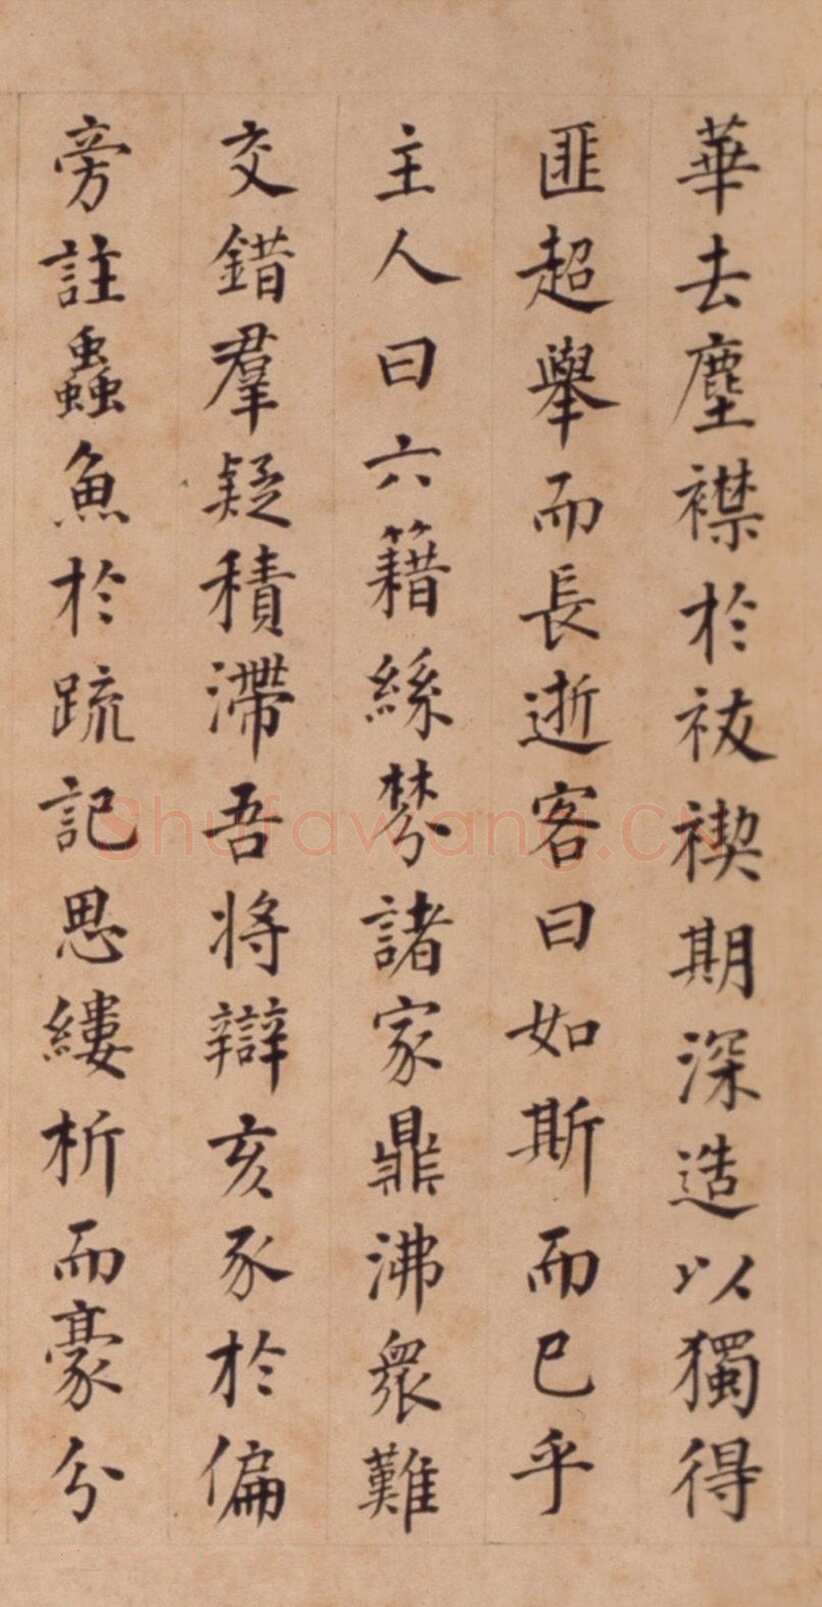 華去塵襟於祓禊期深造以獨得
匪超舉而長逝客曰如斯而已乎
主人曰六籍絲棼諸家鼎沸衆難
交錯羣疑積滯吾將辯亥豕於偏
旁註蟲魚於疏記思縷析而豪分
Shufawang.CN